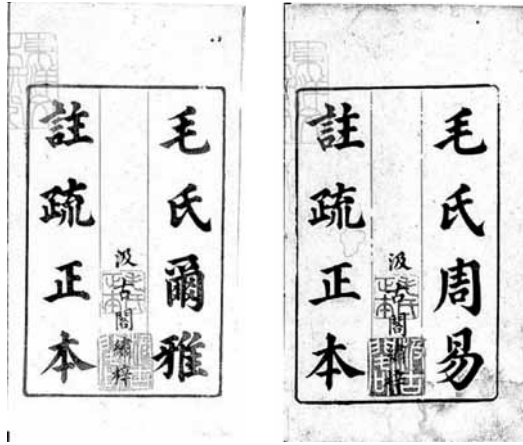 毛氏爾雅
汲古閣繡梓
註疏正本
毛氏周易
汲古閣繡梓
註疏正本